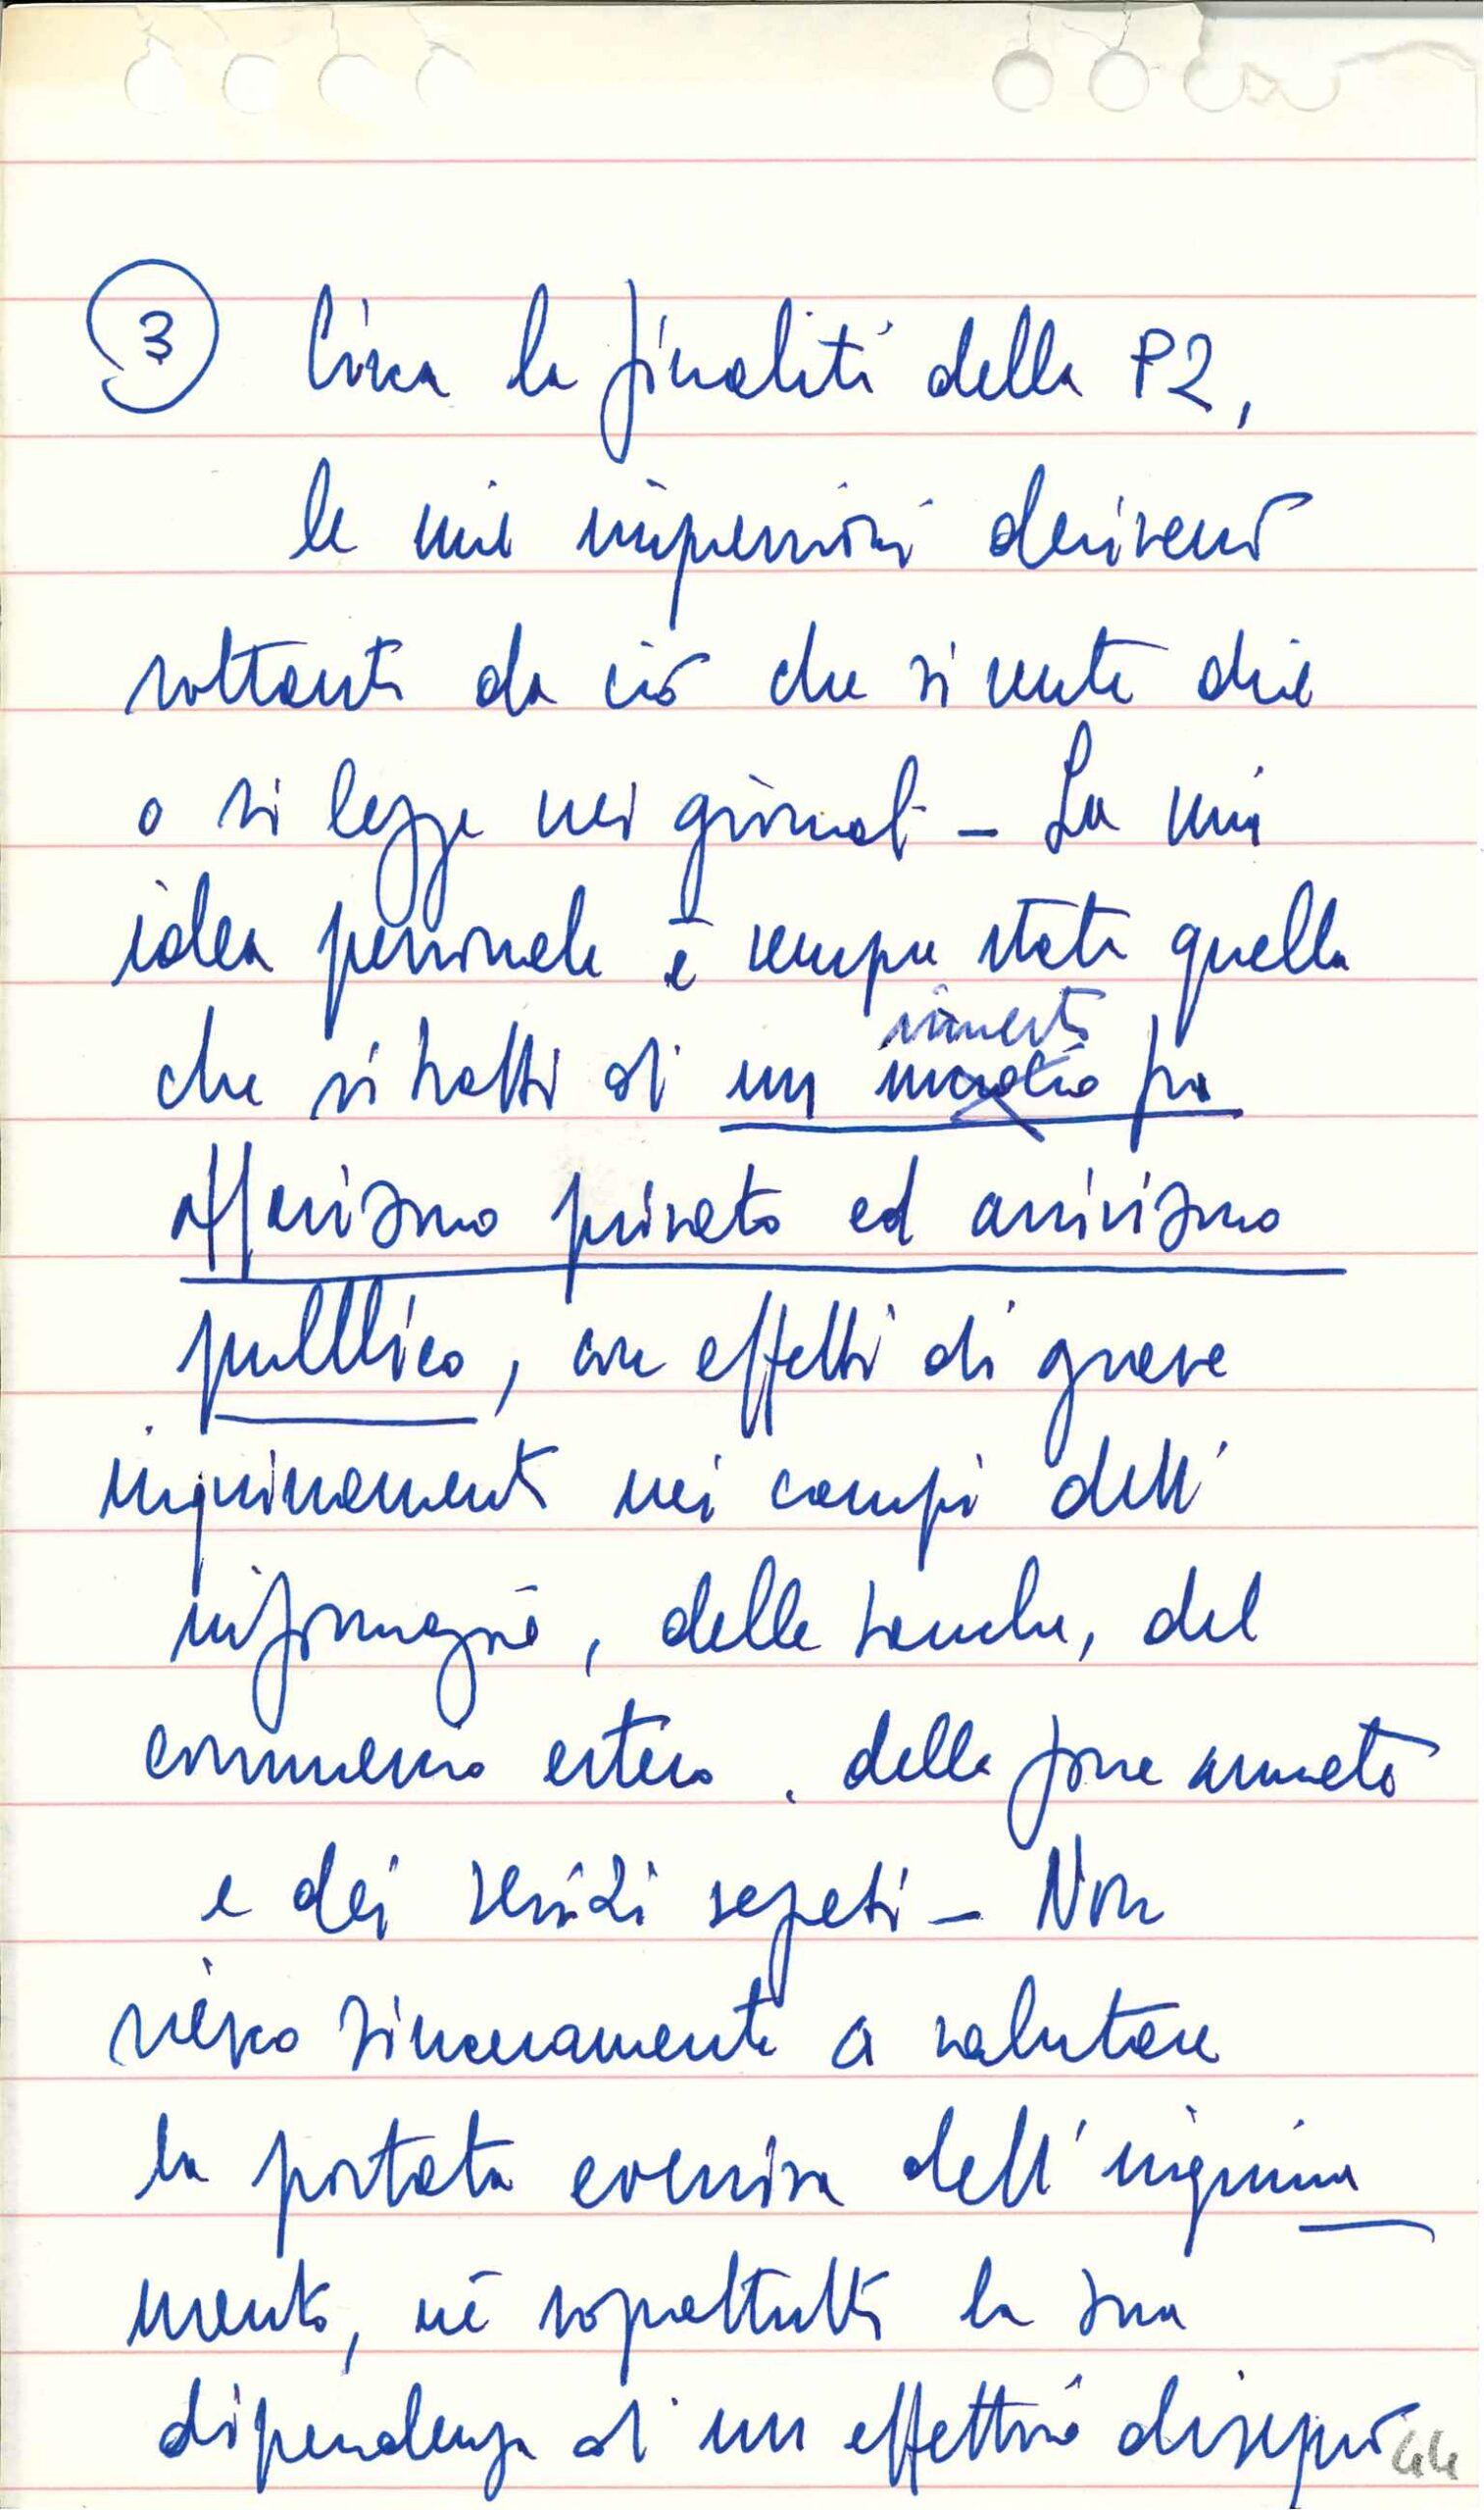 ③ Circa la finalità della P2,
le mie impressioni derivano
soltanto da ciò che si sente dire
o si legge nei giornali - La mia
idea personale è sempre stata quella
che si tratti di un
misto fra
affarismo privato ed arrivismo
pubblico, con effetti di grave
inquinamento nei campi dell'
informazione, delle banche, del
commercio estero, delle forze armate
e dei servizi segreti - Non
riesco sinceramente a valutare
la portata eversiva dell'inquina
mento, nè soprattutto la sua
dipendenza di un effettivo disegno
44